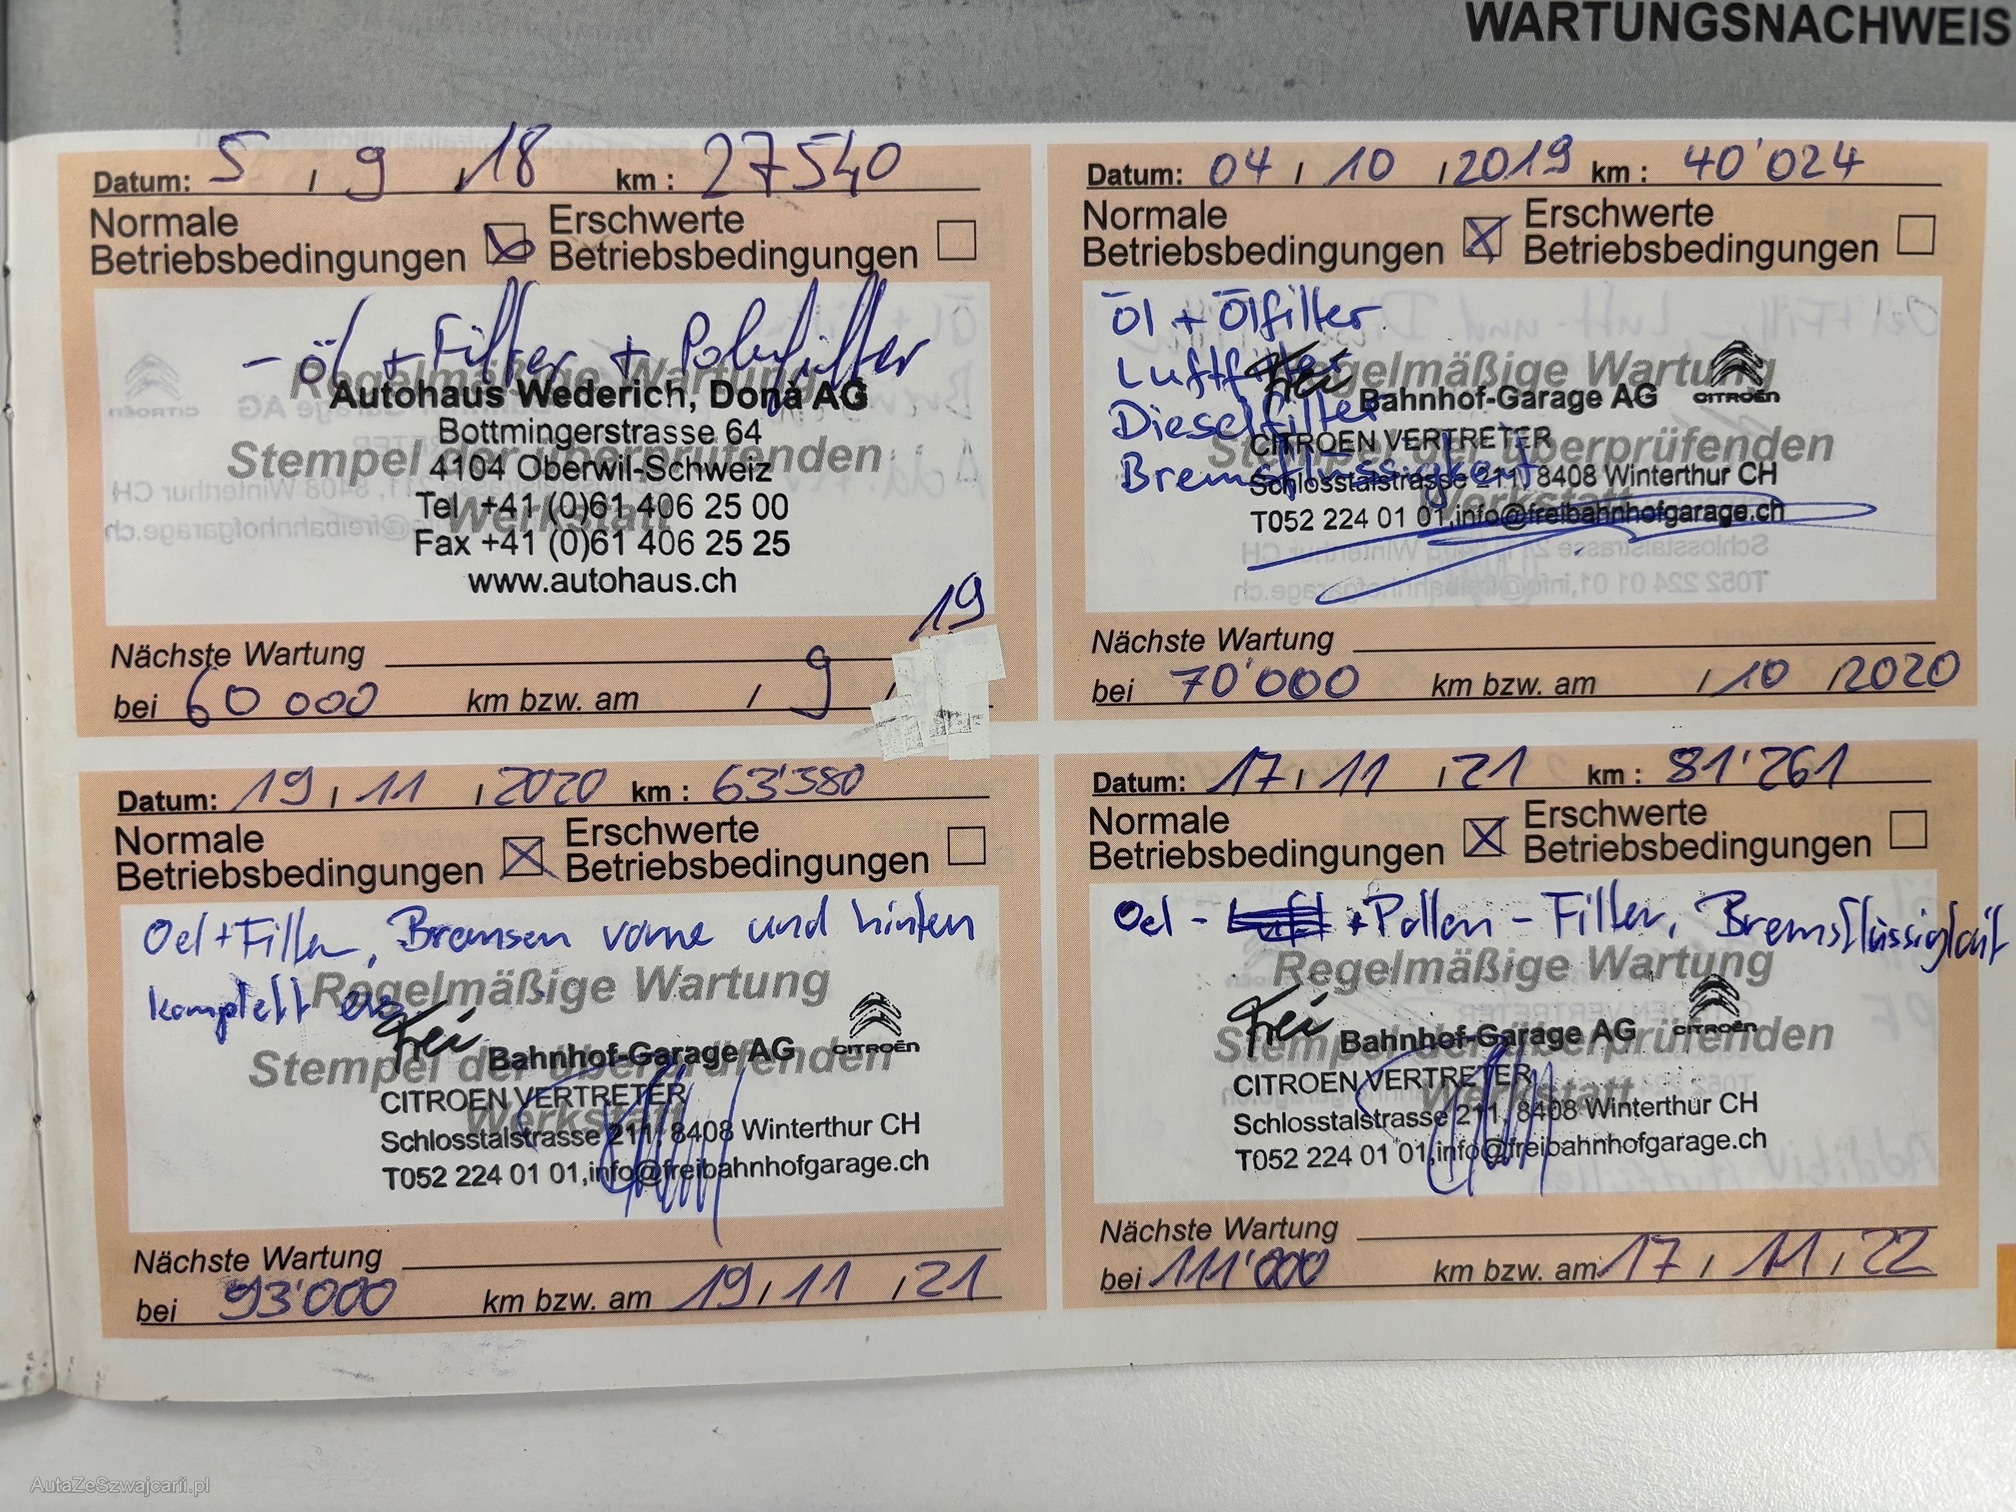 WARTUNGSNACHWEIS
Datum: 5 / 9 / 18 km : 27540
Normale Betriebsbedingungen Erschwerte Betriebsbedingungen
- öl + Filter +
Regelmäßige Wartung
Autohaus Wederich, Donà AG
Bottmingerstrasse 64
Stempel der überprüfenden
4104 Oberwil-Schweiz
Tel +41 (0)61 406 25 00
Werkstatt
Fax +41 (0)61 406 25 25
www.autohaus.ch
19
Nächste Wartung
bei 60 000 km bzw. am / 9 /
Datum: 04 / 10 / 2019 km : 40'024
Normale Betriebsbedingungen Erschwerte Betriebsbedingungen
Öl + Ölfilter
Luftfilter
Regelmäßige Wartung
Frei Bahnhof-Garage AG CITROËN
Dieselfilter
CITROEN VERTRETER
Stempel der überprüfenden
Bremsflüssigkeit
Schlosstalstrasse 211, 8408 Winterthur CH
Werkstatt
T052 224 01 01,info@freibahnhofgarage.ch
Nächste Wartung
bei 70'000 km bzw. am / 10 / 2020
Datum: 19 / 11 / 2020 km : 63'380
Normale Betriebsbedingungen Erschwerte Betriebsbedingungen
Oel + Filter, Bremsen vorne und hinten
komplett
Regelmäßige Wartung
Frei Bahnhof-Garage AG CITROËN
Stempel der überprüfenden
CITROEN VERTRETER
Werkstatt
Schlosstalstrasse 211, 8408 Winterthur CH
T052 224 01 01,info@freibahnhofgarage.ch
Nächste Wartung
bei 93'000 km bzw. am 19 / 11 / 21
Datum: 17 / 11 / 21 km : 81'261
Normale Betriebsbedingungen Erschwerte Betriebsbedingungen
Oel - + Pollen - Filter, Bremsflüssigkeit
Regelmäßige Wartung
Frei Bahnhof-Garage AG CITROËN
Stempel der überprüfenden
CITROEN VERTRETER
Werkstatt
Schlosstalstrasse 211, 8408 Winterthur CH
T052 224 01 01,info@freibahnhofgarage.ch
Nächste Wartung
bei 111'000 km bzw. am 17 / 11 / 22
AutaZeSzwajcarii.pl